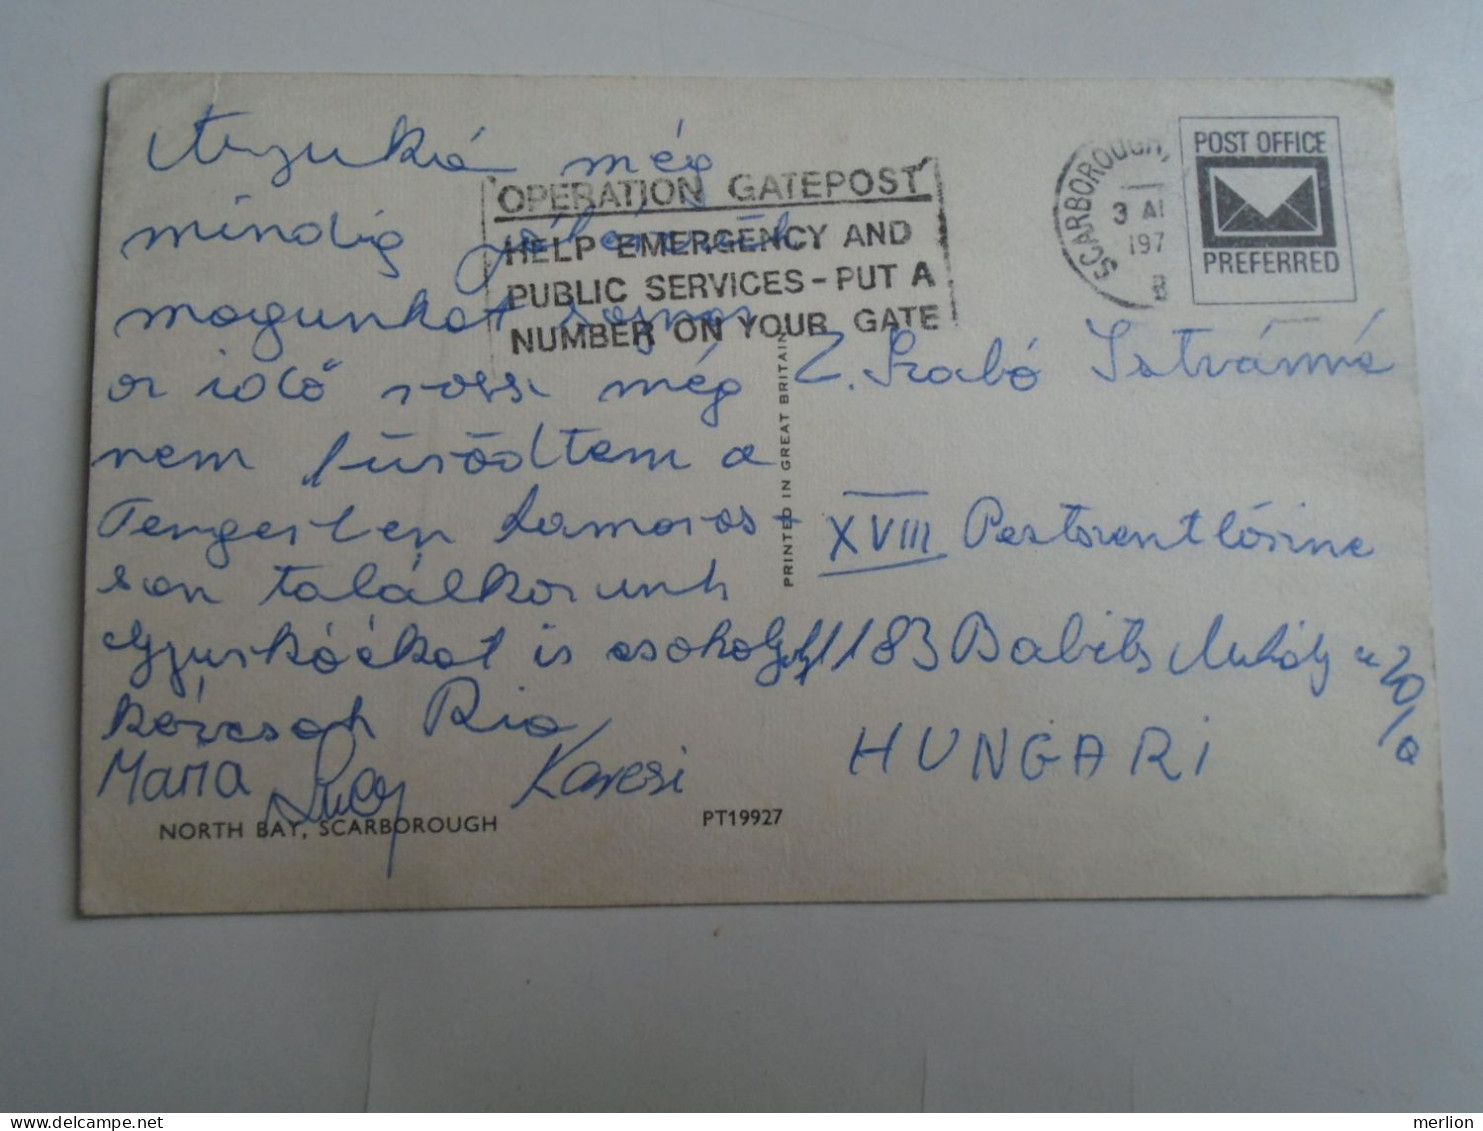 Anyuká még
mindig jól érezük
magunkat sajnos
az idő rossz még
nem fürödtem a
Tengerben hamaros-
san találkozunk
Gyuskáékat is csokoljuk
kézcsok Ria
Mama Lucy Kareesi
NORTH BAY, SCARBOROUGH
PT19927
PRINTED IN GREAT BRITAIN
OPERATION GATEPOST
HELP EMERGENCY AND
PUBLIC SERVICES - PUT A
NUMBER ON YOUR GATE
SCARBOROUGH,
3 AU
197
B
POST OFFICE
PREFERRED
Z. Szabó Istvánné
XVIII Pestszentlőrinc
1183 Babits Mihály u 20/a
HUNGARI
merlion
delcampe.net